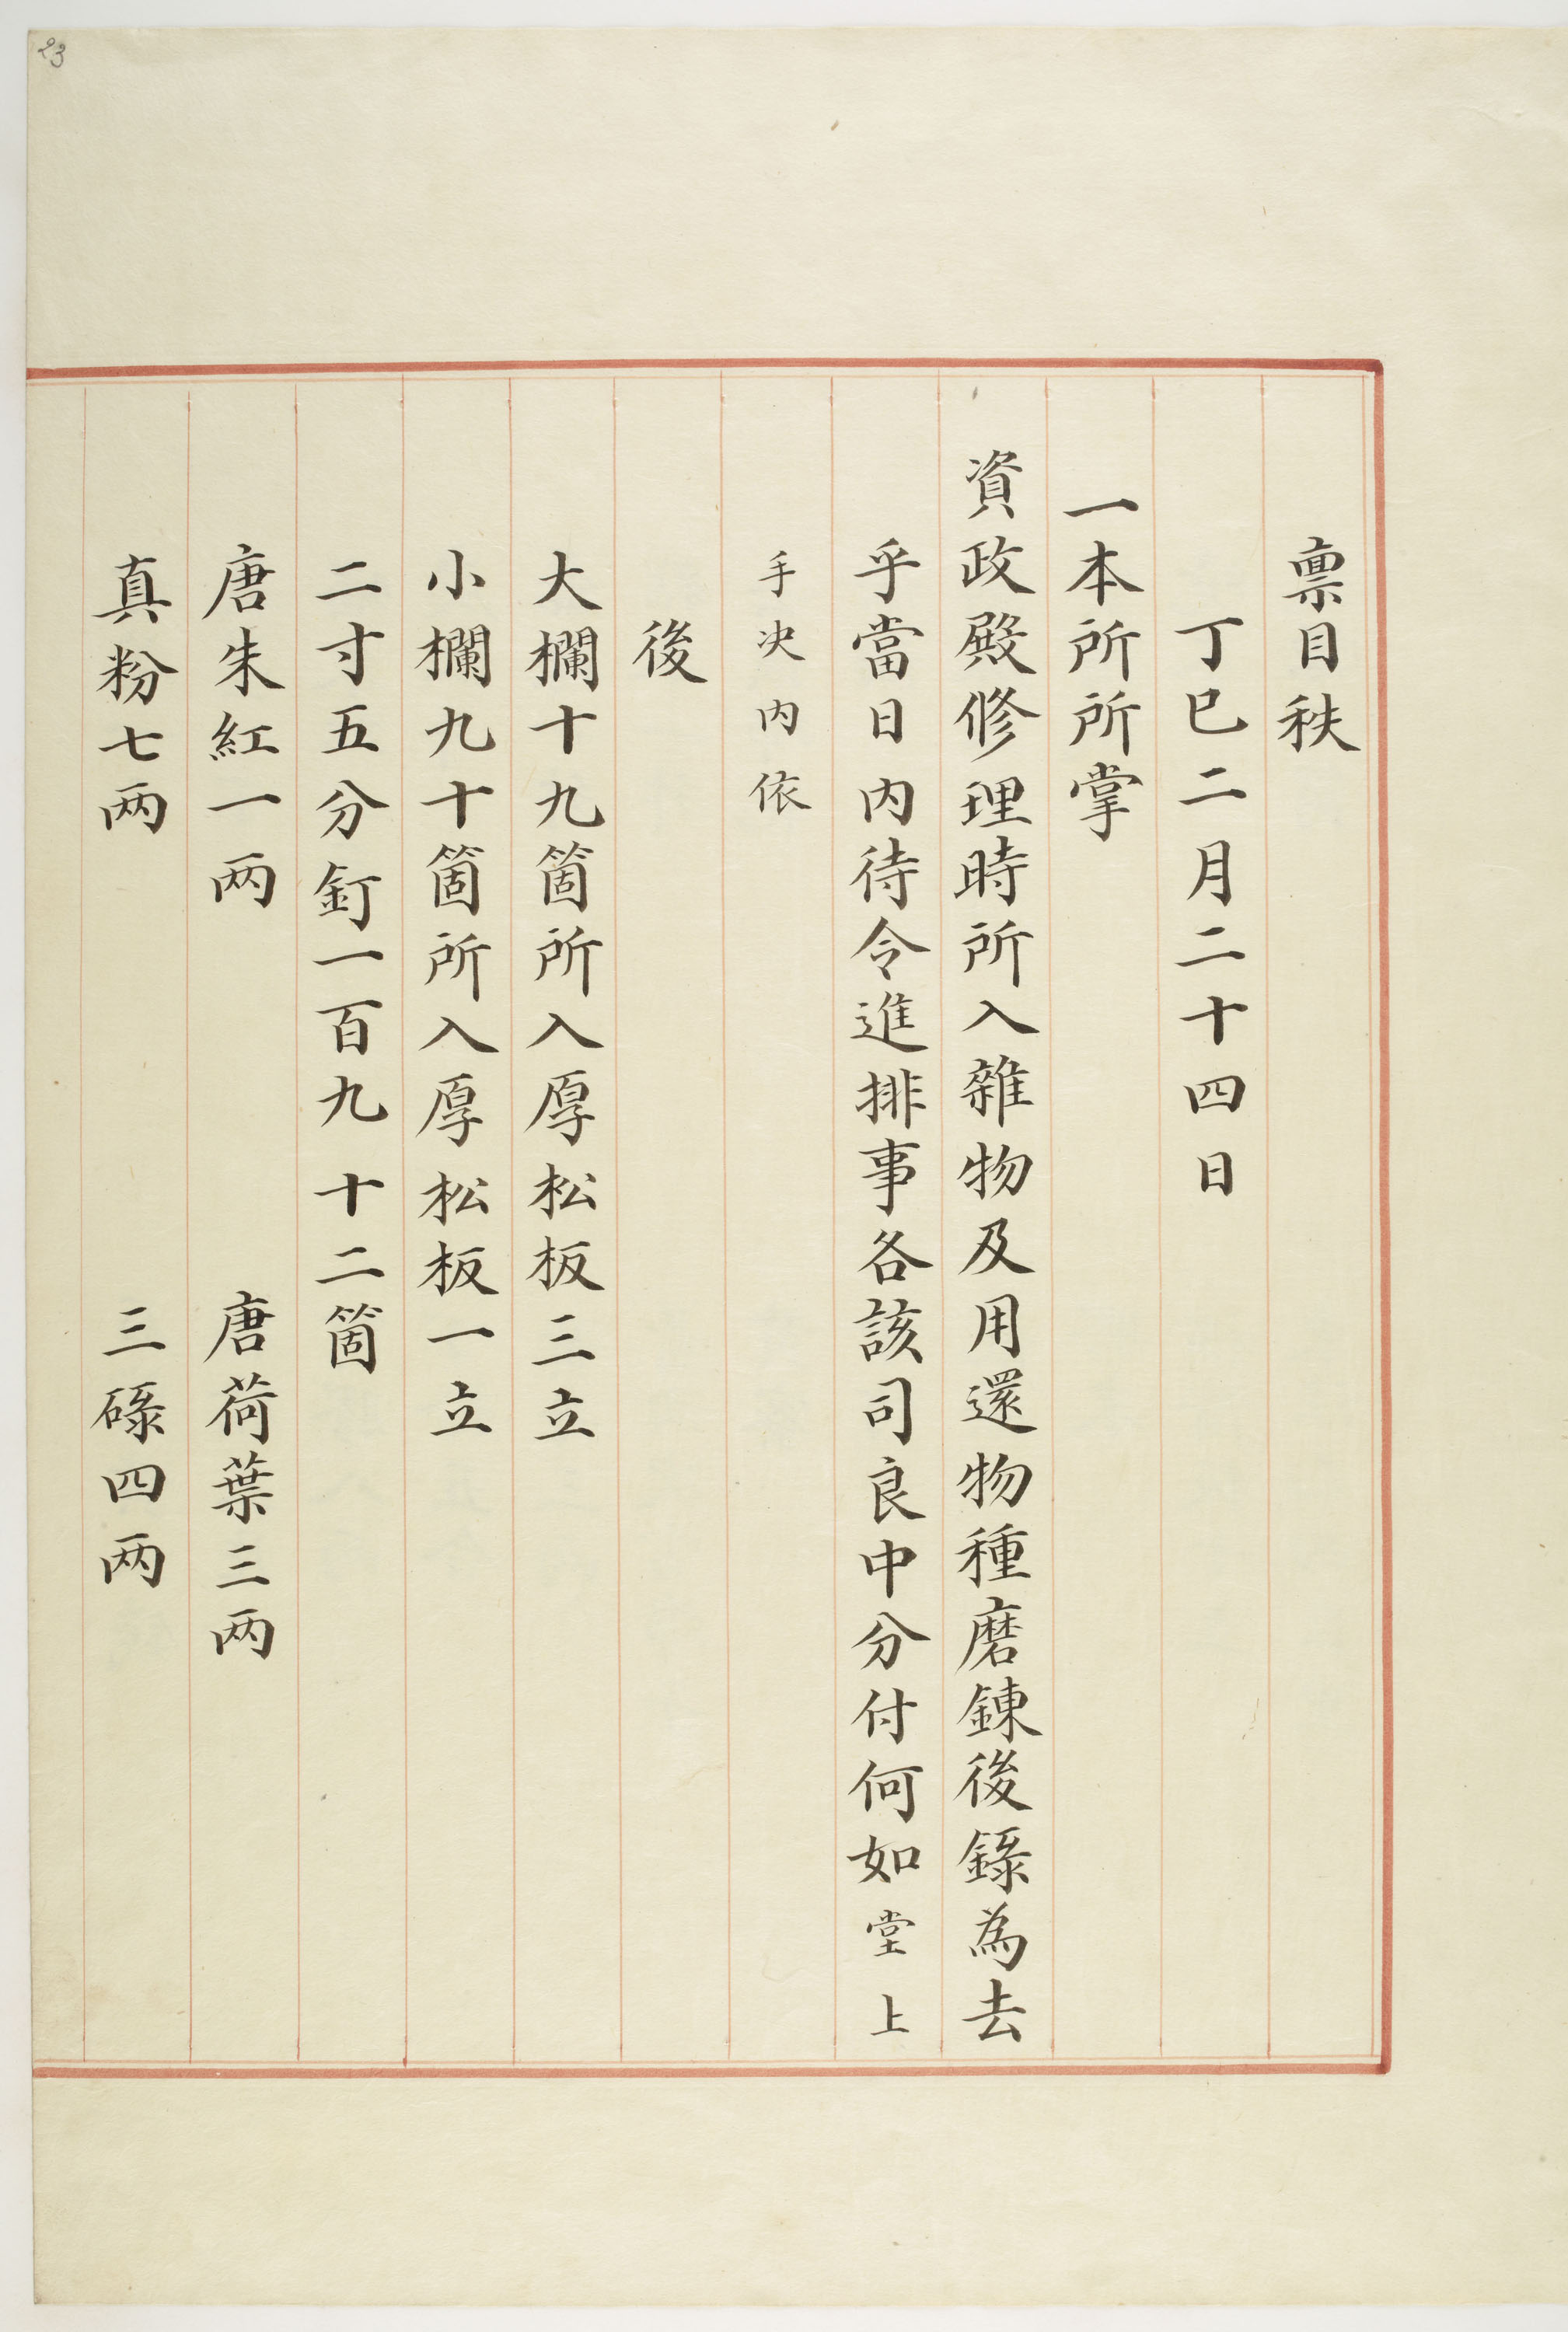 23
禀目秩
丁巳二月二十四日
一本所所掌
資政殿修理時所入雜物及用還物種磨鍊後錄為去
乎當日內待令進排事各該司良中分付何如堂上
手决內依
後
大欄十九箇所入厚松板三立
小欄九十箇所入厚松板一立
二寸五分釘一百九十二箇
唐朱紅一兩 唐荷葉三兩
真粉七兩 三碌四兩